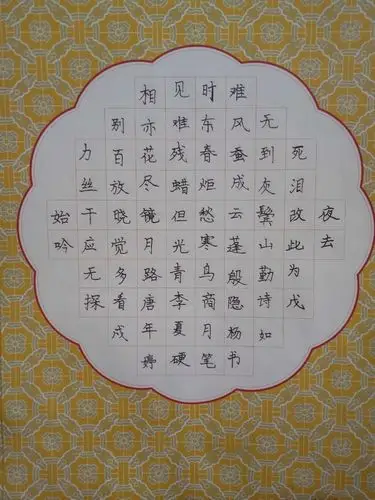 相见时难
别亦难东风无
力百花残春蚕到死
丝放尽蜡炬成灰泪
始干晓镜但愁云鬓改夜
吟应觉月光寒蓬山此去
无多路青鸟殷勤为
探看唐李商隐诗戊
戌年夏月杨如
婷硬笔书